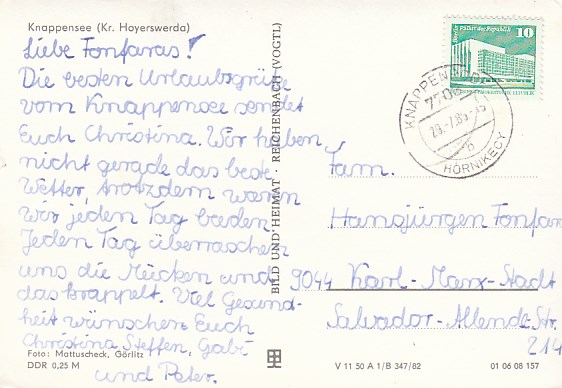 Knappensee (Kr. Hoyerswerda)
Liebe Fonfaras!
Die besten Urlaubsgrüße
vom Knappensee sendet
Euch Christina. Wir haben
nicht gerade das beste
Wetter, trotzdem waren
wir jeden Tag baden.
Jeden Tag überraschen
uns die Mücken und
das krappelt. Viel Gesund-
heit wünschen Euch
Christina Steffen, Gabi
und Peter.
Foto: Mattuscheck, Görlitz
DDR 0,25 M
BILD UND HEIMAT · REICHENBACH (VOGTL)
10
KNAPPEN
7706
HÓRNIKECY
Fam.
Hansjürgen Fonfara
9044 Karl-Marx-Stadt
Salvador-Allende-Str.
214
V 11 50 A 1/B 347/82
01 06 08 157